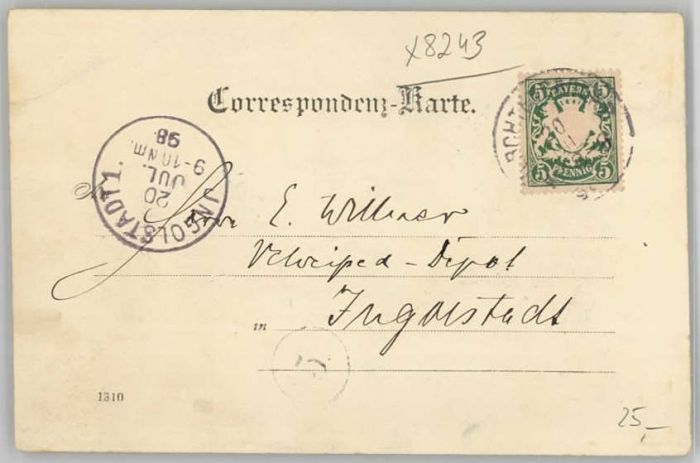 x8243
Correspondenz-Karte.
5 BAYERN 5
5 PFENNIG 5
INGOLSTADT 1.
20
JUL
9-10 Nm.
98.
Herrn E.
Velociped-Depot
in Ingolstadt
1310
25,-